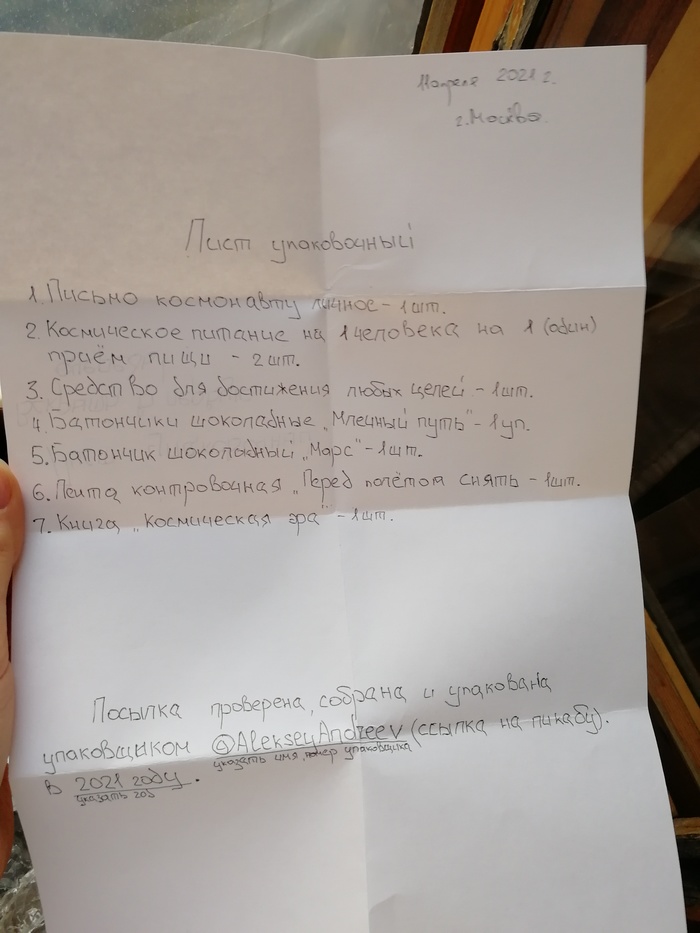 11 апреля 2021 г.
г. Москва.
Лист упаковочный
1. Письмо космонавту личное - 1 шт.
2. Космическое питание на 1 человека на 1 (один)
приём пищи - 2 шт.
3. Средство для достижения любых целей - 1 шт.
4. Батончики шоколадные „Млечный путь" - 1 уп.
5. Батончик шоколадный „Марс" - 1 шт.
6. Лента контровочная „Перед полётом снять - 1 шт.
7. Книга „Космическая эра" - 1 шт.
Посылка проверена, собрана и упакована
упаковщиком @AlekseyAndreev (ссылка на пикабу).
указать имя, номер упаковщика
в 2021 году.
указать год